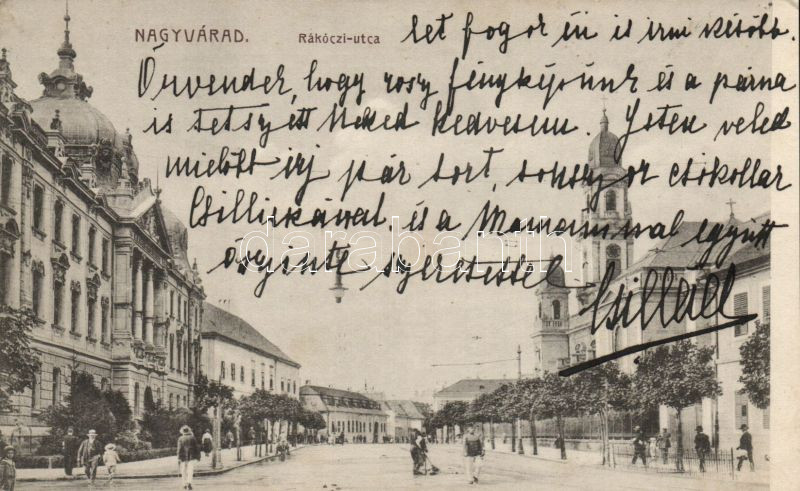 NAGYVÁRAD. Rákóczi-utca
let fogok én is irni később.
Örvendek, hogy rosz fényképünk és a párna
is tetszett Neked kedvesem. Isten veled
mielőbb irj pár sort, sokszor csókollak
Csillikával, és a Mamámmal együtt
őszinte szeretettel
darabanth.com